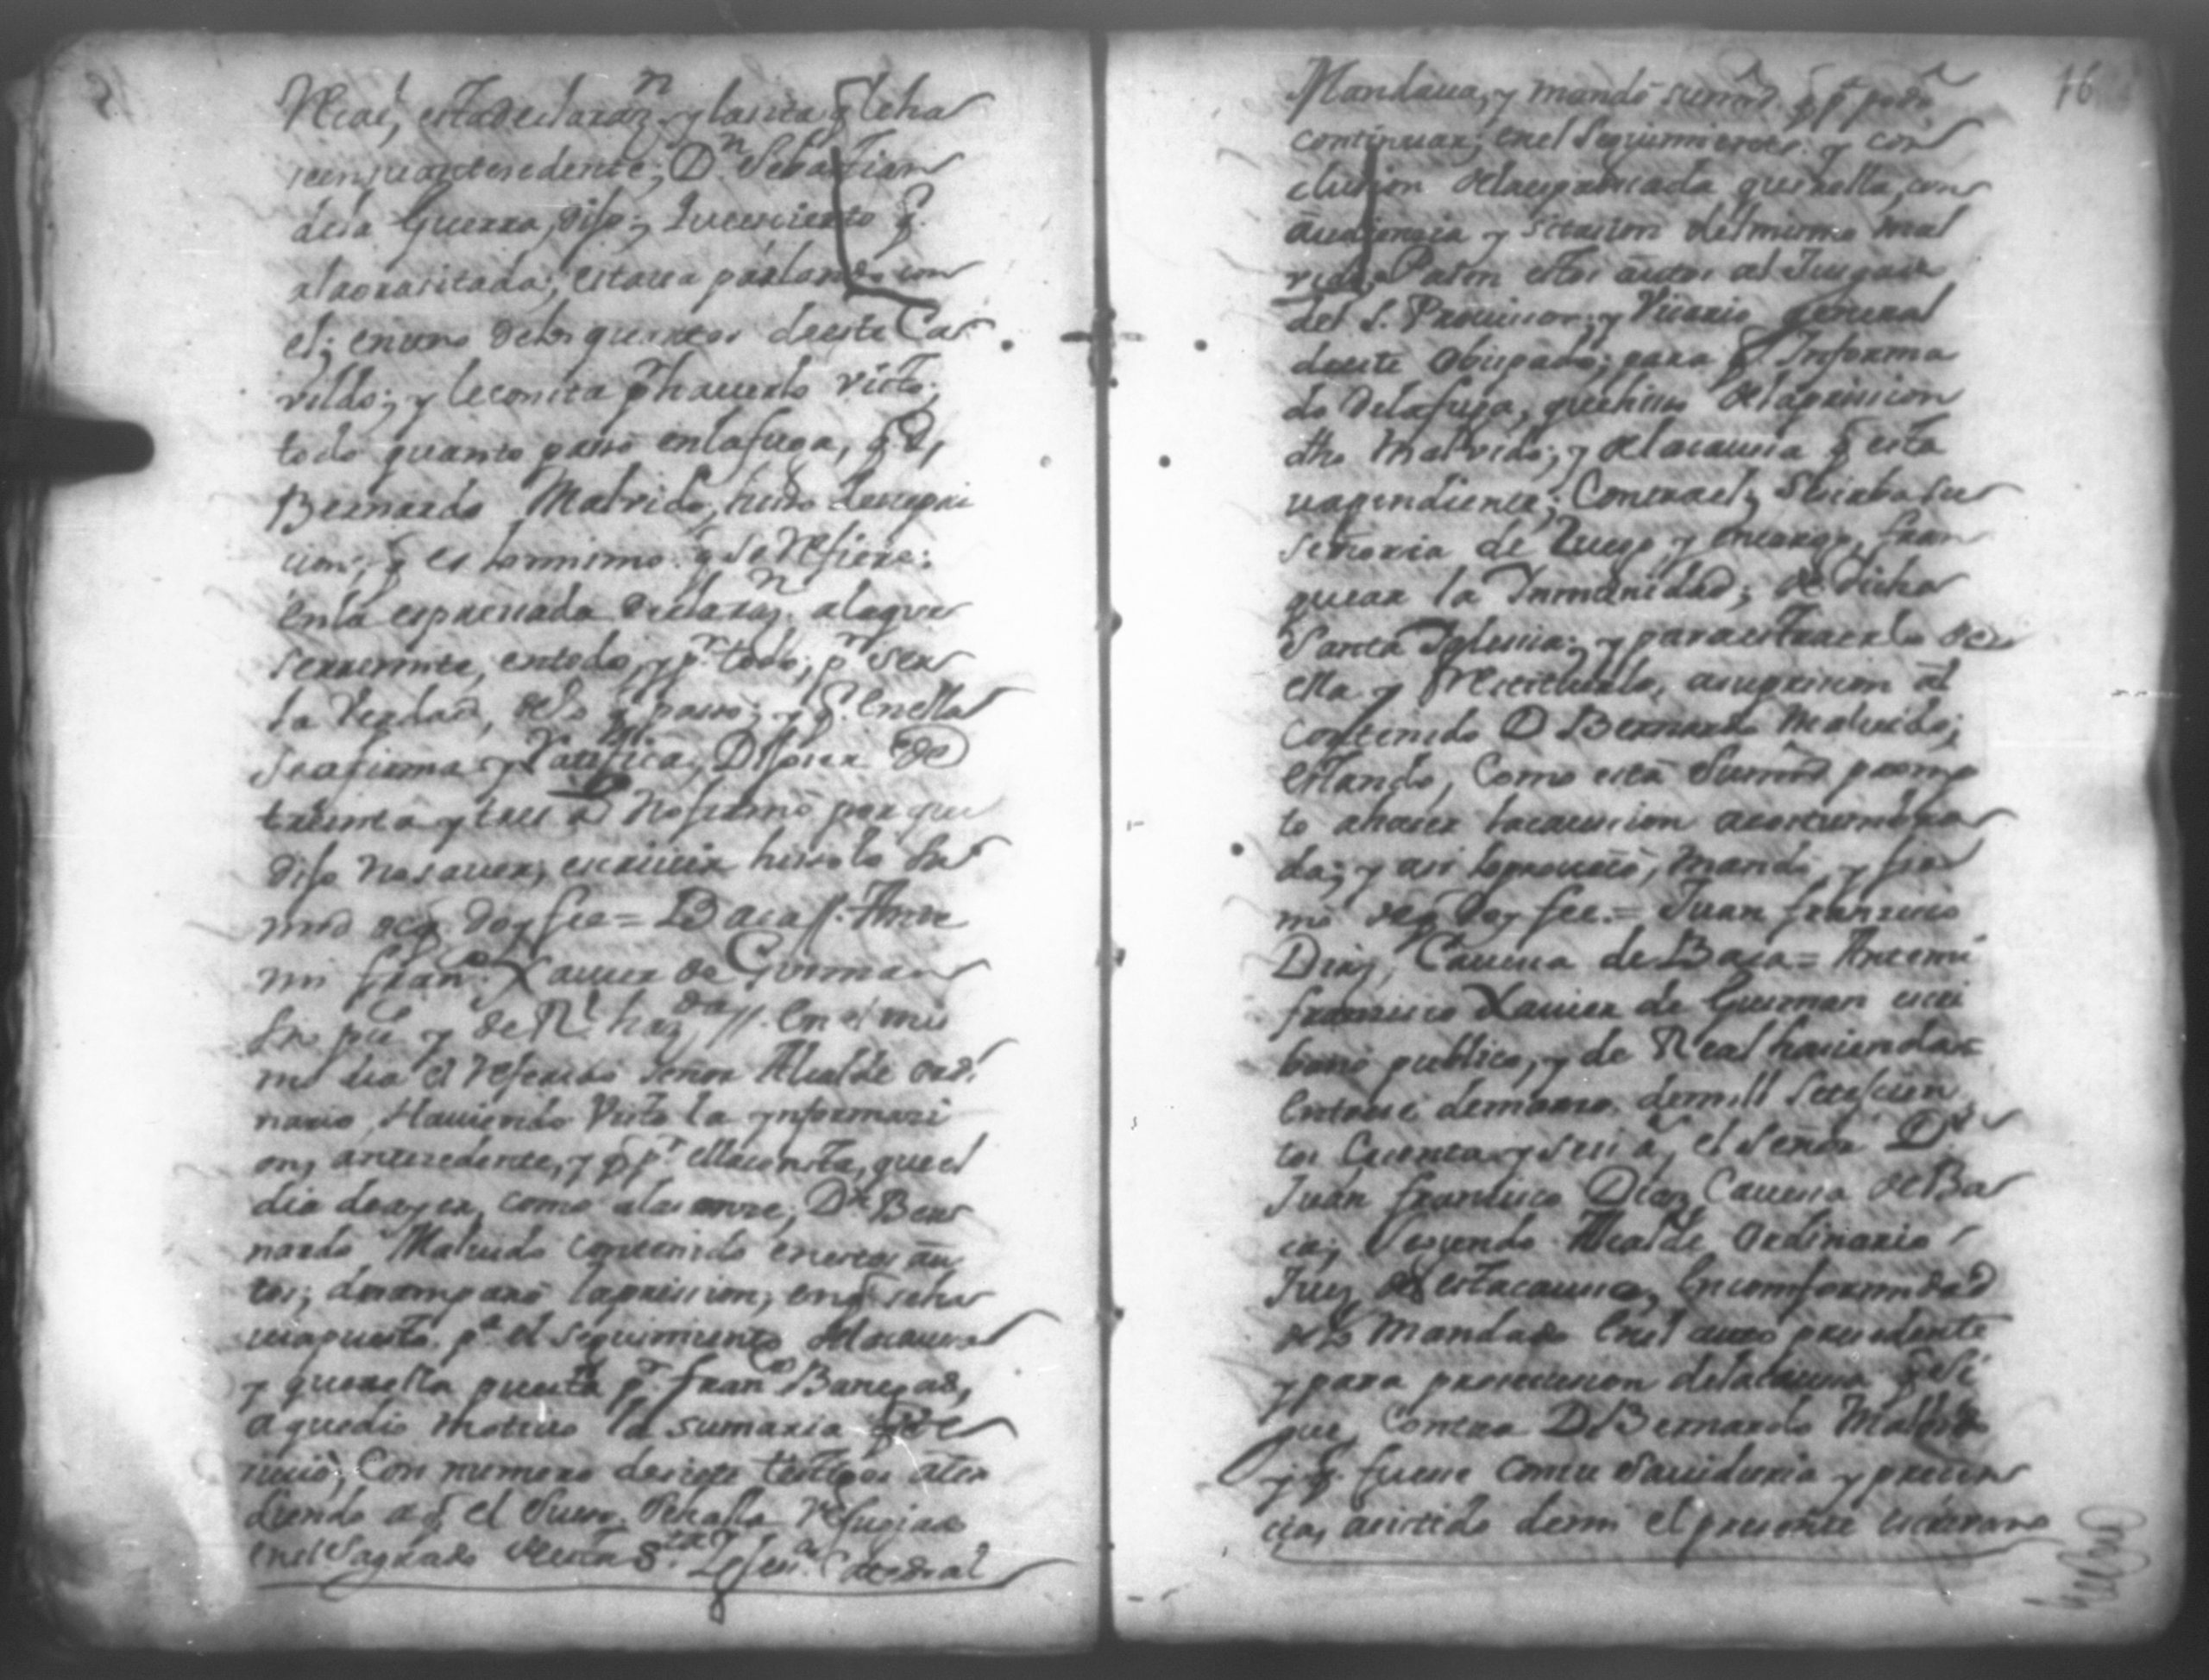 Real, estadeclarazn. y lasita q̃ leha
seensuantesedente; Dn. Sebastian
dela Guerra, dijo; Quees cierto q̃.
alaorasitada; estaua parlando con
el; enuno delos quartos deeste Ca-
vildo; y leconsta pr hauerlo visto;
todo quanto passo enlafuga, q̃ D,
Bernardo Malvido, hisso desupri
cion; q̃ es lo mismo q̃ se Refiere:
enla espressada declarazn. alaque
seremite, entodo, y pr. todo; pr ser
la Verdad, delo q̃ passo; y q̃. enella
seafirma y Ratifica, Dijo ser de
treinta y tres as. Nofirmò porque
dijo nosauer, escriuir hisolo Su
mrd deq̃ doy fee = Baca //. Ante
mi Franco. Xauier de Gusman
Sno pco y de Rl. hazda //. En el mis
mo dia el Referido señor Alcalde ordi
nario, Hauiendo Visto la ynformasi
on, antesedente, y q̃ pr. ella consta, que el
dia deayer, como alas onze, Dn. Ber
nardo Malvido contenido enestos au
tos; desamparò laprission, enq̃ seha
uiapuesto. pa el seguimiento delacausa
y querella puesta pr. Franco Banegas,
aquedio motiuo la sumaria q̃ de
nunciò, Con numero desiete testigos aten
diendo aq̃ el Suso. sehalla refugiado
enel Sagrado deesta Sta Iglesia. Cathedral
16
Mandaua, y mandò sumrd. q̃ pa poder
continuar; enel seguimiento y con
clusion delaespressada querella, con
audiencia y sitasion del mismo Mal
vido, Pasen estos autos al Jusgado
del S. Prouisor, y Vicario general
deeste obispado; para q̃. Informa
do delafuga, quehisso delaprission
dho Malvido; y delacausa q̃ esta
uapendiente; Contrael; Sesirba su
señoria de Ruego y encargo, fran
quear la Inmunidad; de dicha
Santa Iglesia; y paraestraerlo de
ella y Restituirlo, asuprision al
contenido D Bernardo Malvido;
estando, Como està Sumrd promp
to ahaser lacausion acostumbra
da; y asi loproueiò, mandò, y fir
mò deq̃ Doy fee. = Juan francisco
Dias, Caueza de Baca = Antemi
francisco Xauier de Gusman escri
bano publico, y de Real hacienda =
demarso. demill Setescien
tos Cinenta y seis as, el Señor Dn
Juan francisco Dias Caueza de Ba
ca; Segundo Alcalde Ordinario
Juez deestacausa, Enconformidad
delo Mandado Enel auto presedente
y para prosecusion delacausa q̃ si
gue, Contra D. Bernardo Malvido
y q̃. fuese Consu Sauiduria y presen
cia, asistido demi el presente escriuano